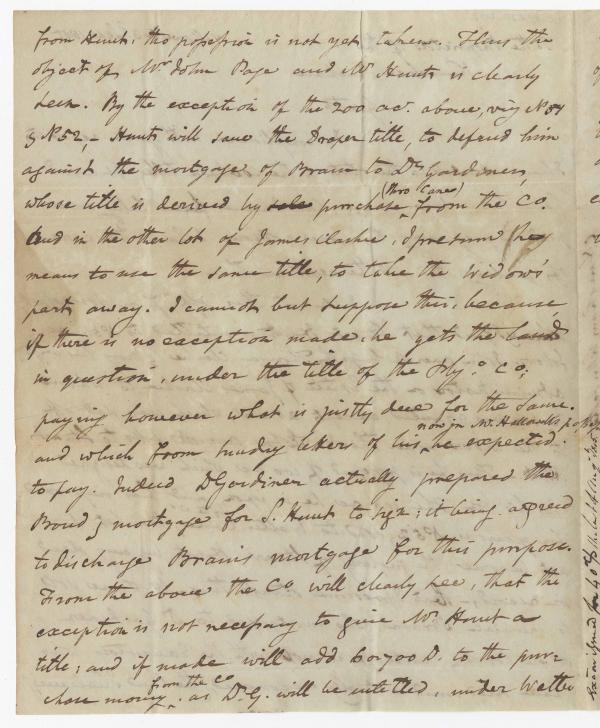 from Hunt, the possession is not yet taken. Thus the
object of Mr John Page and Mr Hunt is clearly
seen. By the exception of the 200 ac. above, viz N 51
& N 52,- Hunt will save the Draper title, to defend him
against the mortgage of Brain to Dr Gardiner,
whose title is derived by purchase (thro Cane) from the Co.
And in the other lot of James Clarke, I presume he
means to use the same title, to take the widow's
part away. I cannot but suppose this, because,
if there is no exception made, he gets the land
in question, under the title of the Ply:o Co;
paying however what is justly due for the same.
and which from sundry letters of his, now in Mr Hallowells he expected.
to pay. Indeed D Gardiner actually prepared the
Bond, & mortgage for S. Hunt to sign; it being agreed
to discharge Brain's mortgage for this purpose.
From the above the Co will clearly see, that the
exception is not necessary to give Mr Hunt a
title; and if made will add 6 or 700 D. to the pur=
chase money from the Co, as Dr G. will be entitled, under